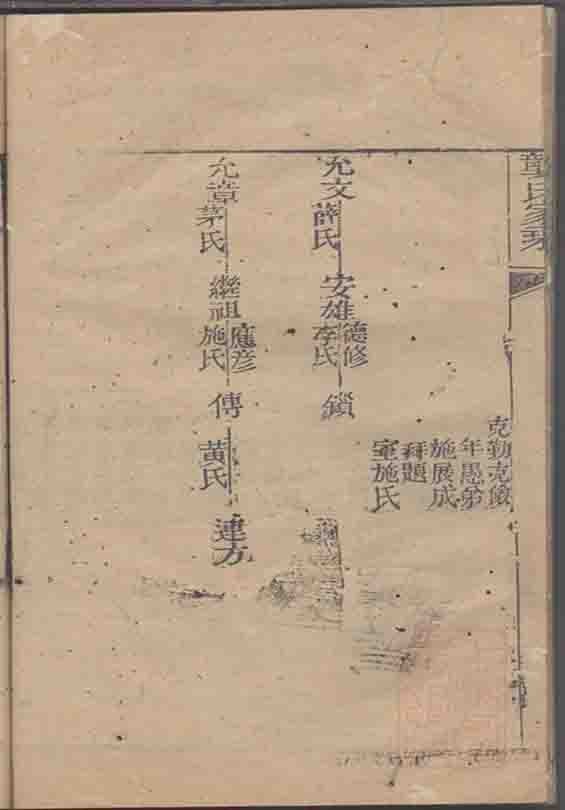 龔氏家乘
克勤克儉
年愚弟
施展成
拜題
室施氏
允文 薛氏 安雄 德修 李氏 鎖
允章 茅氏 繼祖 應彦 施氏 傳 黄氏 連方